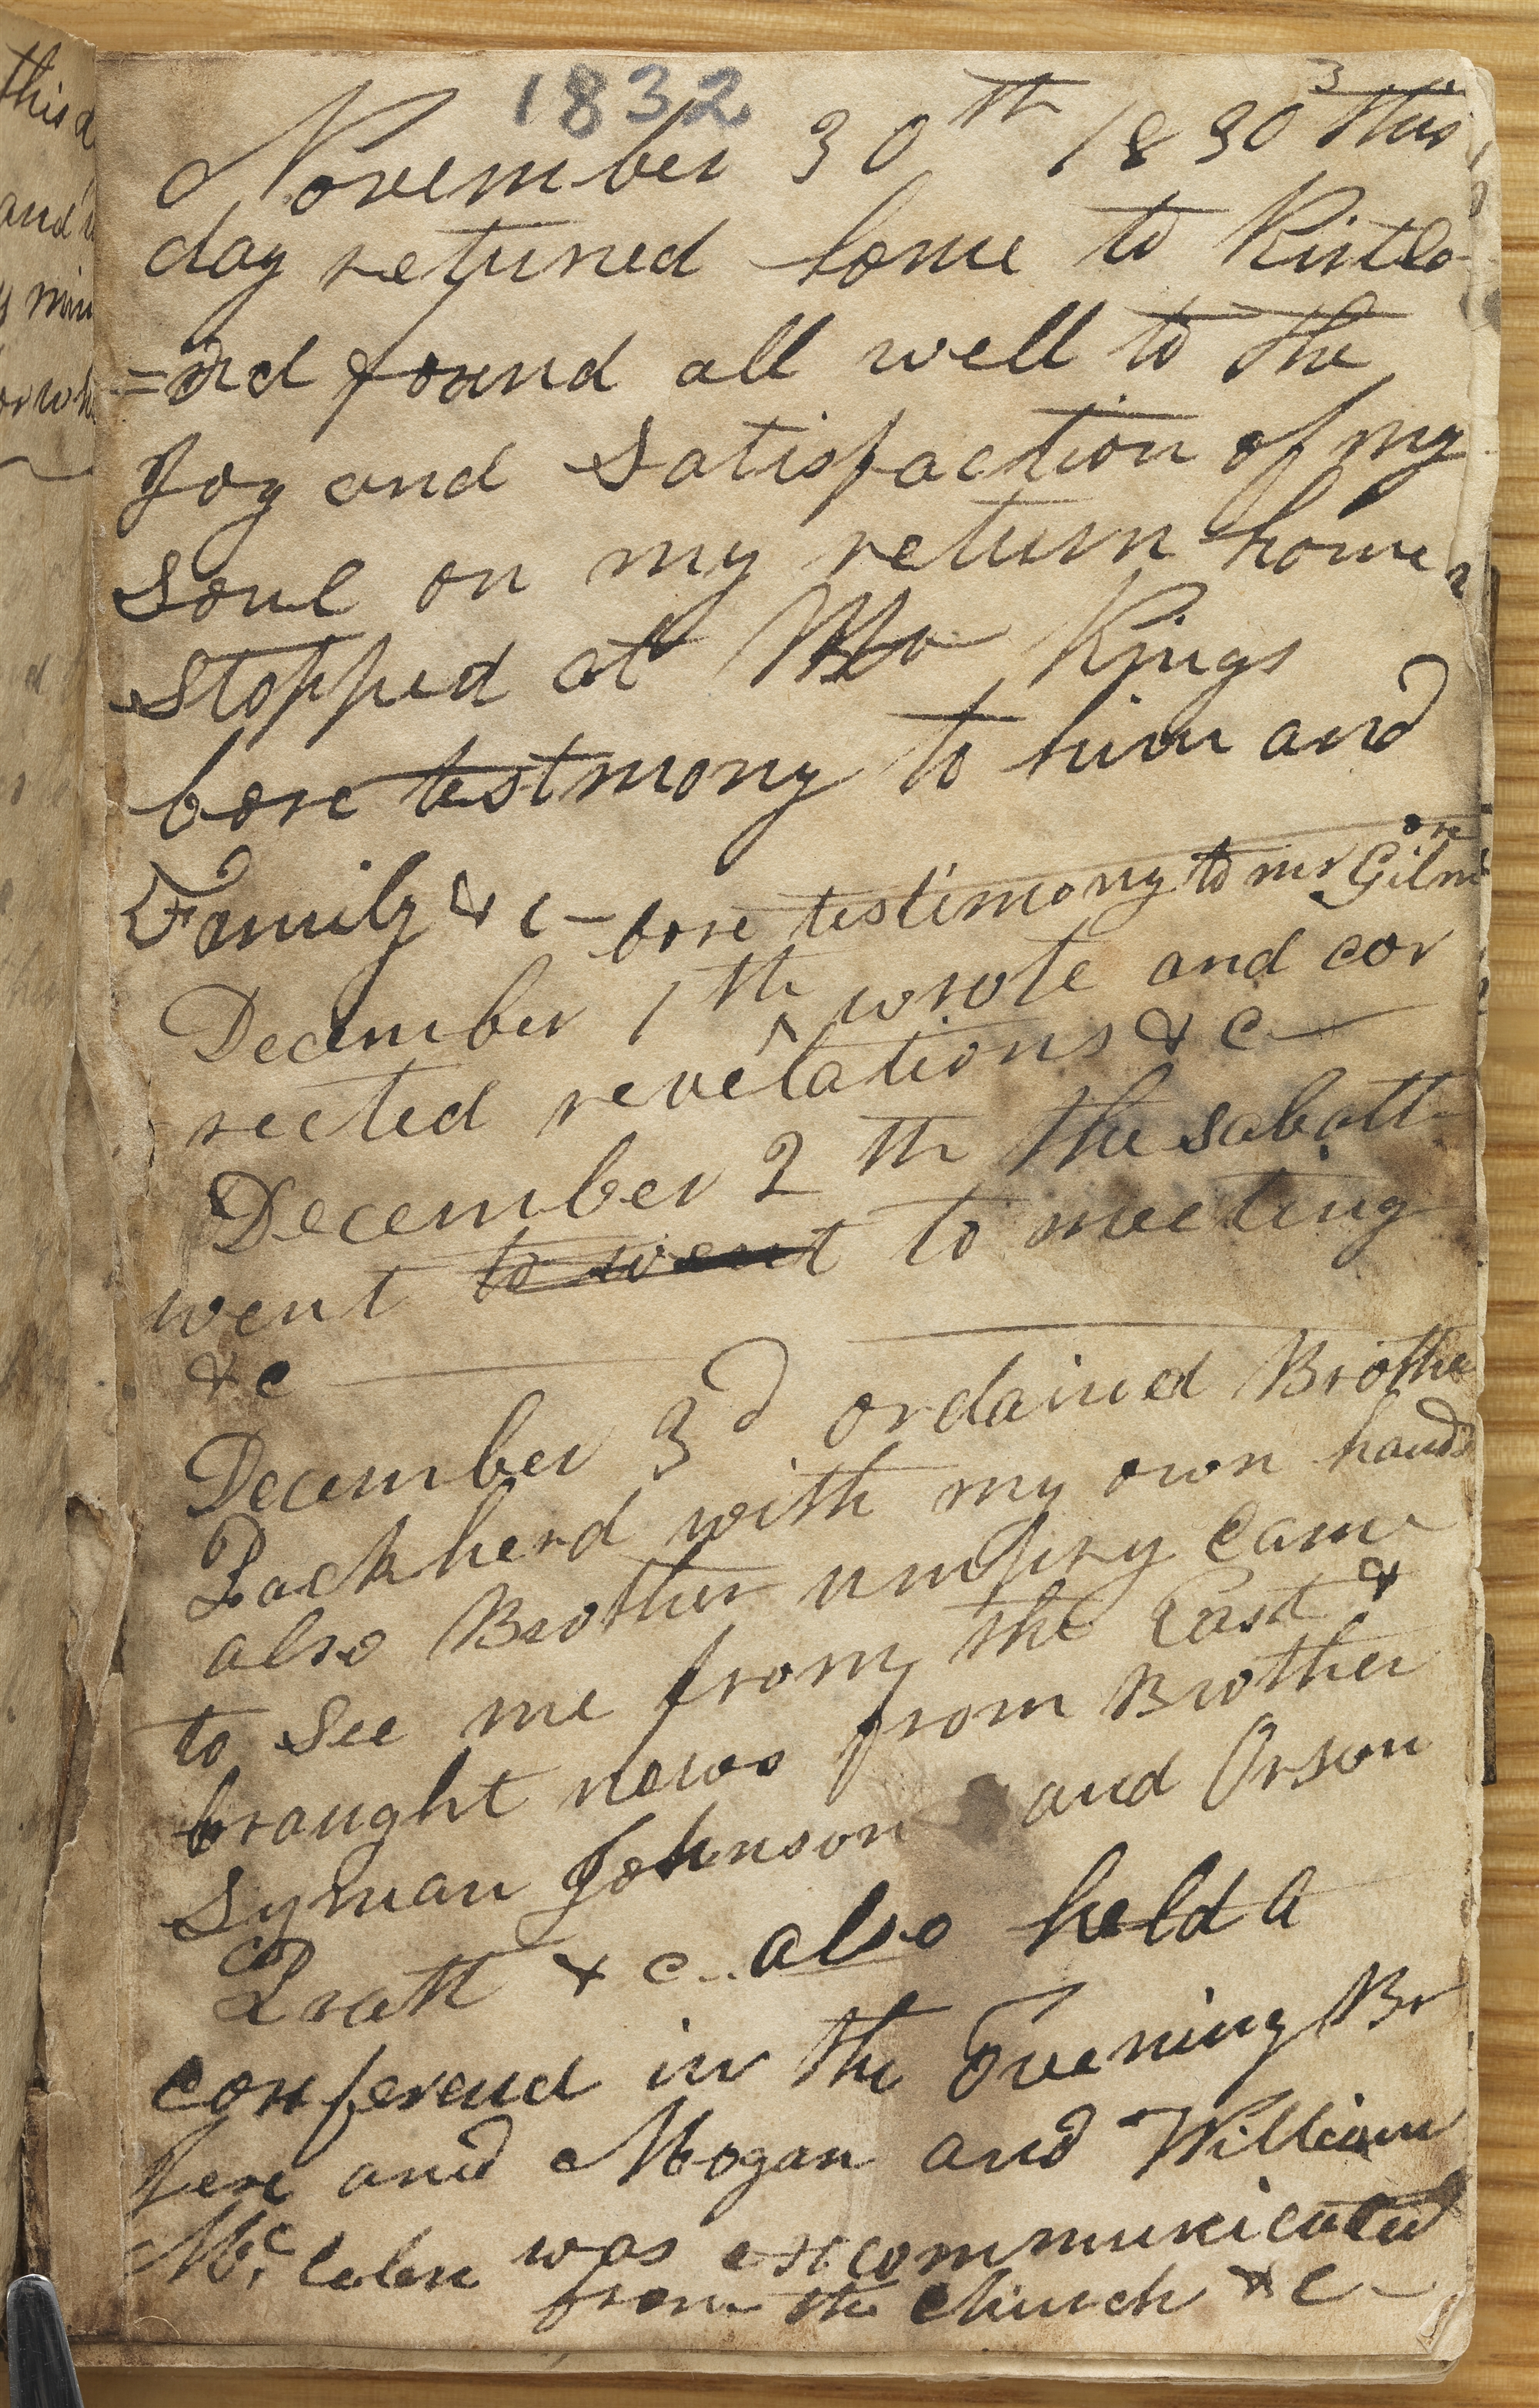 1832
3
November 30th 1830 this
day returned home to Kirtla
=nd found all well to the
Joy and Satisfaction of my
soul on my return home
stopped at Mr Kings
bore testmony to him and
Family & c— bore testimony to mr Gilmore
December 1th wrote and cor
rected revelations & c—
December 2th the sabath
went to went to meeting
& c
December 3d ordained Brothe
Packherd with my own hands
also Brother umfiry came
to see me from the East &
braught news from Brother
Lyman Johnson and Orson
Pratt & c.. also held a
conferend in the Evening Br
Jese and Mogan and William
Mc. lelen was excommunicated
from the church & c—
this d
and